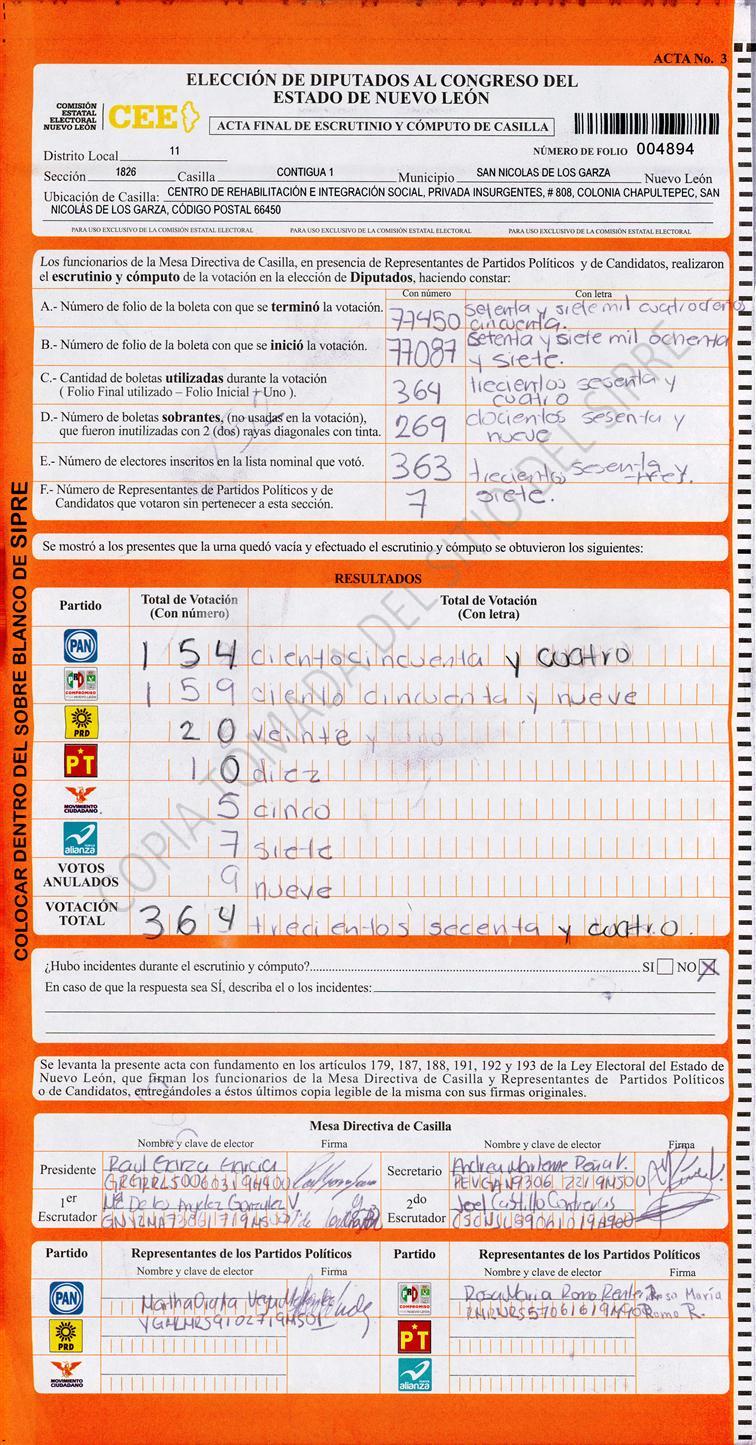 ACTA No. 3
ELECCIÓN DE DIPUTADOS AL CONGRESO DEL
ESTADO DE NUEVO LEÓN
COMISIÓN
ESTATAL
ELECTORAL
NUEVO LEÓN
CEE
ACTA FINAL DE ESCRUTINIO Y CÓMPUTO DE CASILLA
Distrito Local 11 NÚMERO DE FOLIO 004894
Sección 1826 Casilla CONTIGUA 1 Municipio SAN NICOLAS DE LOS GARZA Nuevo León
Ubicación de Casilla: CENTRO DE REHABILITACIÓN E INTEGRACIÓN SOCIAL, PRIVADA INSURGENTES, # 808, COLONIA CHAPULTEPEC, SAN
NICOLÁS DE LOS GARZA, CÓDIGO POSTAL 66450
PARA USO EXCLUSIVO DE LA COMISIÓN ESTATAL ELECTORAL PARA USO EXCLUSIVO DE LA COMISIÓN ESTATAL ELECTORAL PARA USO EXCLUSIVO DE LA COMISIÓN ESTATAL ELECTORAL
Los funcionarios de la Mesa Directiva de Casilla, en presencia de Representantes de Partidos Políticos y de Candidatos, realizaron
el escrutinio y cómputo de la votación en la elección de Diputados, haciendo constar:
Con número Con letra
A.- Número de folio de la boleta con que se terminó la votación. 77450 setenta y siete mil cuatrocientos
cincuenta.
B.- Número de folio de la boleta con que se inició la votación. 77087 setenta y siete mil ochenta
y siete.
C.- Cantidad de boletas utilizadas durante la votación
( Folio Final utilizado – Folio Inicial + Uno ). 364 trecientos sesenta y
cuatro
D.- Número de boletas sobrantes, (no usadas en la votación),
que fueron inutilizadas con 2 (dos) rayas diagonales con tinta. 269 docientos sesenta y
nueve
E.- Número de electores inscritos en la lista nominal que votó. 363 trecientos sesenta y
tres.
F.- Número de Representantes de Partidos Políticos y de
Candidatos que votaron sin pertenecer a esta sección. 7 siete.
Se mostró a los presentes que la urna quedó vacía y efectuado el escrutinio y cómputo se obtuvieron los siguientes:
RESULTADOS
Partido Total de Votación
(Con número) Total de Votación
(Con letra)
PAN 154 cientocincuenta y cuatro
PRI COMPROMISO 159 ciento cincuenta y nueve
PRD 20 veinte y
PT 10 diez
MOVIMIENTO CIUDADANO 5 cinco
nueva alianza 7 siete
VOTOS
ANULADOS 9 nueve
VOTACIÓN
TOTAL 364 trecientos secenta y cuatro.
¿Hubo incidentes durante el escrutinio y cómputo? SI NO X
En caso de que la respuesta sea SÍ, describa el o los incidentes:
Se levanta la presente acta con fundamento en los artículos 179, 187, 188, 191, 192 y 193 de la Ley Electoral del Estado de
Nuevo León, que firman los funcionarios de la Mesa Directiva de Casilla y Representantes de Partidos Políticos
o de Candidatos, entregándoles a éstos últimos copia legible de la misma con sus firmas originales.
Mesa Directiva de Casilla
Nombre y clave de elector Firma Nombre y clave de elector Firma
Presidente Raul Garza Garcia
Secretario Andrea Montserrat Peña V.
1er
Escrutador Ma De los Angeles Gonzalez V
2do
Escrutador Joel Castillo Contreras
Partido Representantes de los Partidos Políticos Partido Representantes de los Partidos Políticos
Nombre y clave de elector Firma Nombre y clave de elector Firma
PAN Martha
PRI Rosa Maria Romo Renteria Rosa María
Romo R.
PRD PT
MOVIMIENTO CIUDADANO nueva alianza
COLOCAR DENTRO DEL SOBRE BLANCO DE SIPRE
COPIA TOMADA DEL SITIO DEL SIPRE